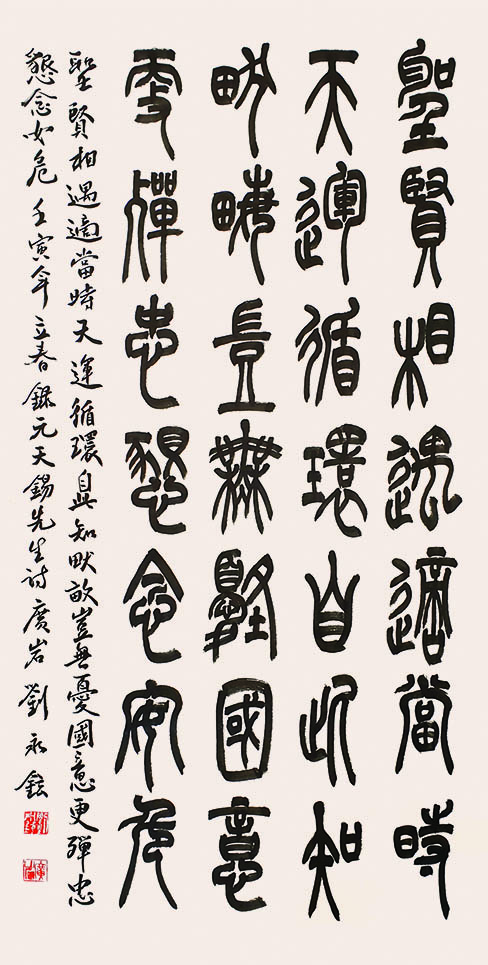 聖賢相遇適當時
天運循環自此知
畎畝豈無憂國意
更殫忠懇念安危
聖賢相遇適當時天運循環自此知畎畝豈無憂國意更殫忠
懇念安危壬寅年立春錄元天錫先生詩廣岩劉永鉉